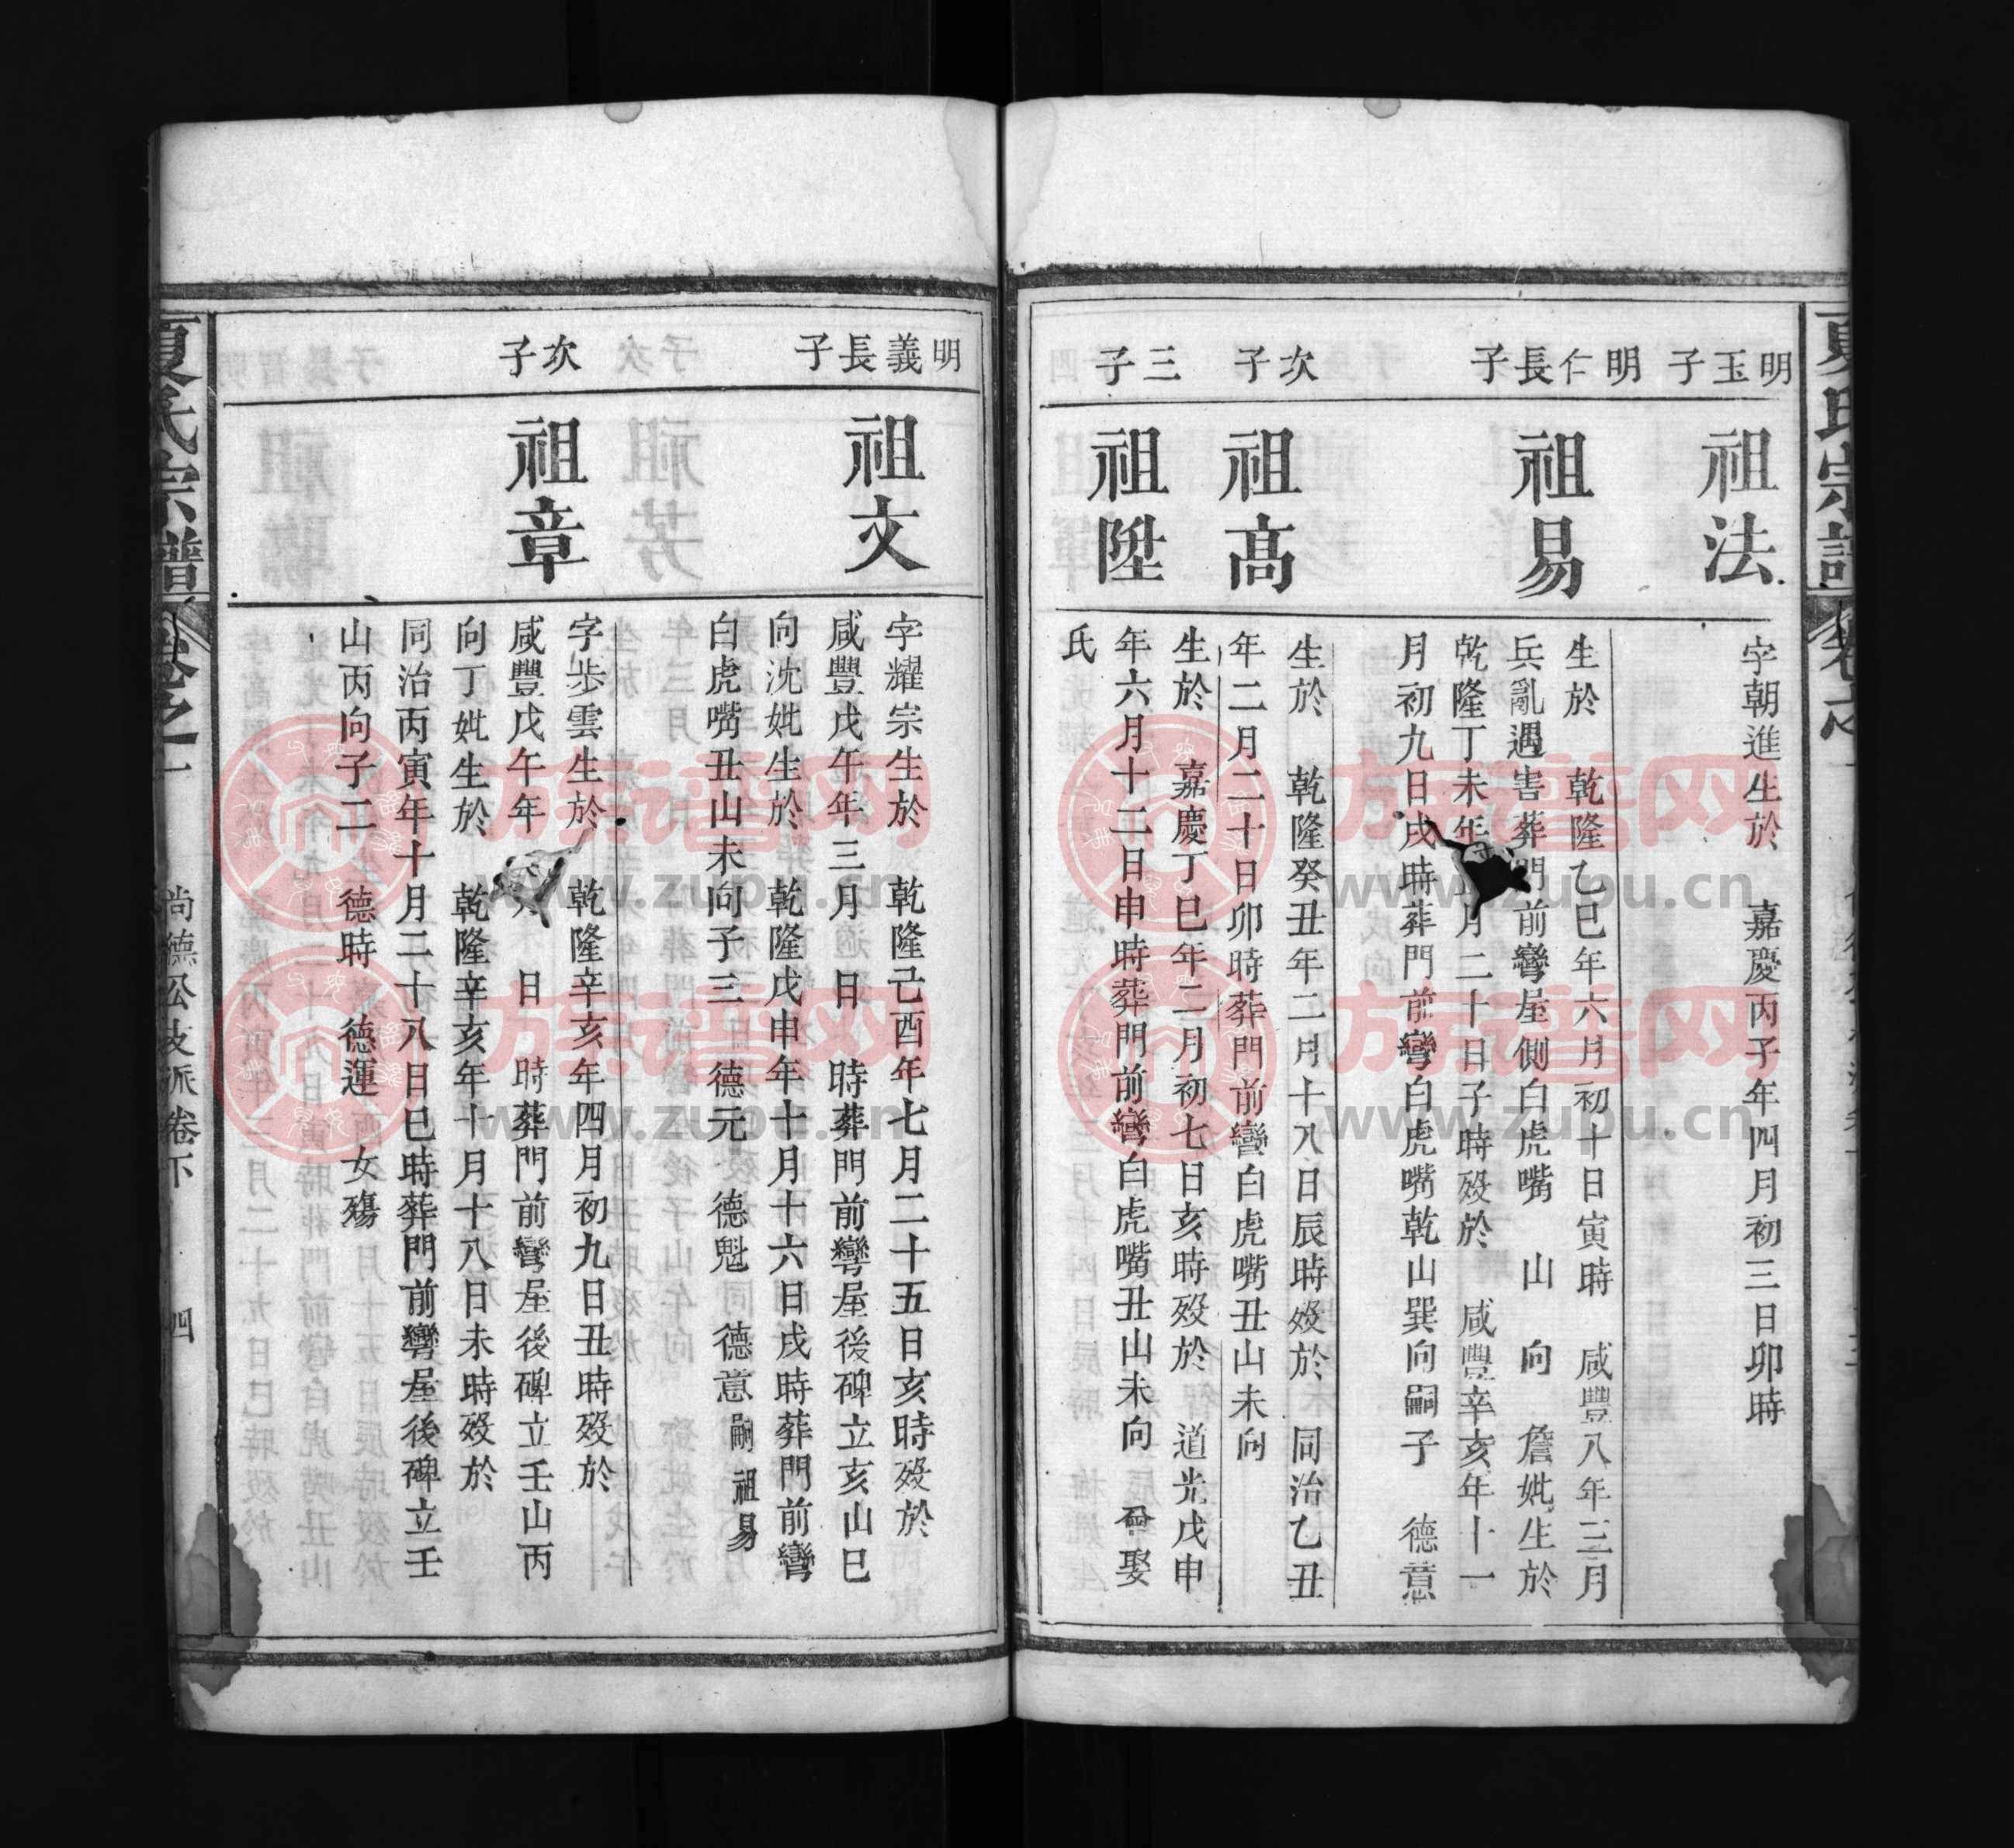 夏氏宗譜
明玉子
祖法
字朝進生於 嘉慶丙子年四月初三日卯時
明仁長子
祖易
生於 乾隆乙巳年六月初十日寅時 咸豐八年三月
兵亂遇害葬門前彎屋側白虎嘴 山 向 詹妣生於
乾隆丁未年正月二十日子時歿於 咸豐辛亥年十一
月初九日戌時葬門前彎白虎嘴乾山巽向嗣子 德意
次子
祖高
生於 乾隆癸丑年二月十八日辰時歿於 同治乙丑
年二月二十日卯時葬門前彎白虎嘴丑山未向
三子
祖陞
生於 嘉慶丁巳年二月初七日亥時歿於 道光戊申
年六月十二日申時葬門前彎白虎嘴丑山未向 曾娶
氏
明義長子
祖文
字耀宗生於 乾隆己酉年七月二十五日亥時歿於
咸豐戊午年三月 日 時葬門前彎屋後碑立亥山巳
向沈妣生於 乾隆戊申年十月十六日戌時葬門前彎
白虎嘴丑山未向子三 德元 德魁 德意嗣 祖易
次子
祖章
字步雲生於 乾隆辛亥年四月初九日丑時歿於
咸豐戊午年 日 時葬門前彎屋後碑立壬山丙
向丁妣生於 乾隆辛亥年十月十八日未時歿於
同治丙寅年十月二十八日巳時葬門前彎屋後碑立壬
山丙向子二 德時 德運 女殤
夏氏宗譜 卷之一 尚德公支派卷下 四
族譜网
www.zupu.cn
族譜网
www.zupu.cn
族譜网
www.zupu.cn
族譜网
www.zupu.cn